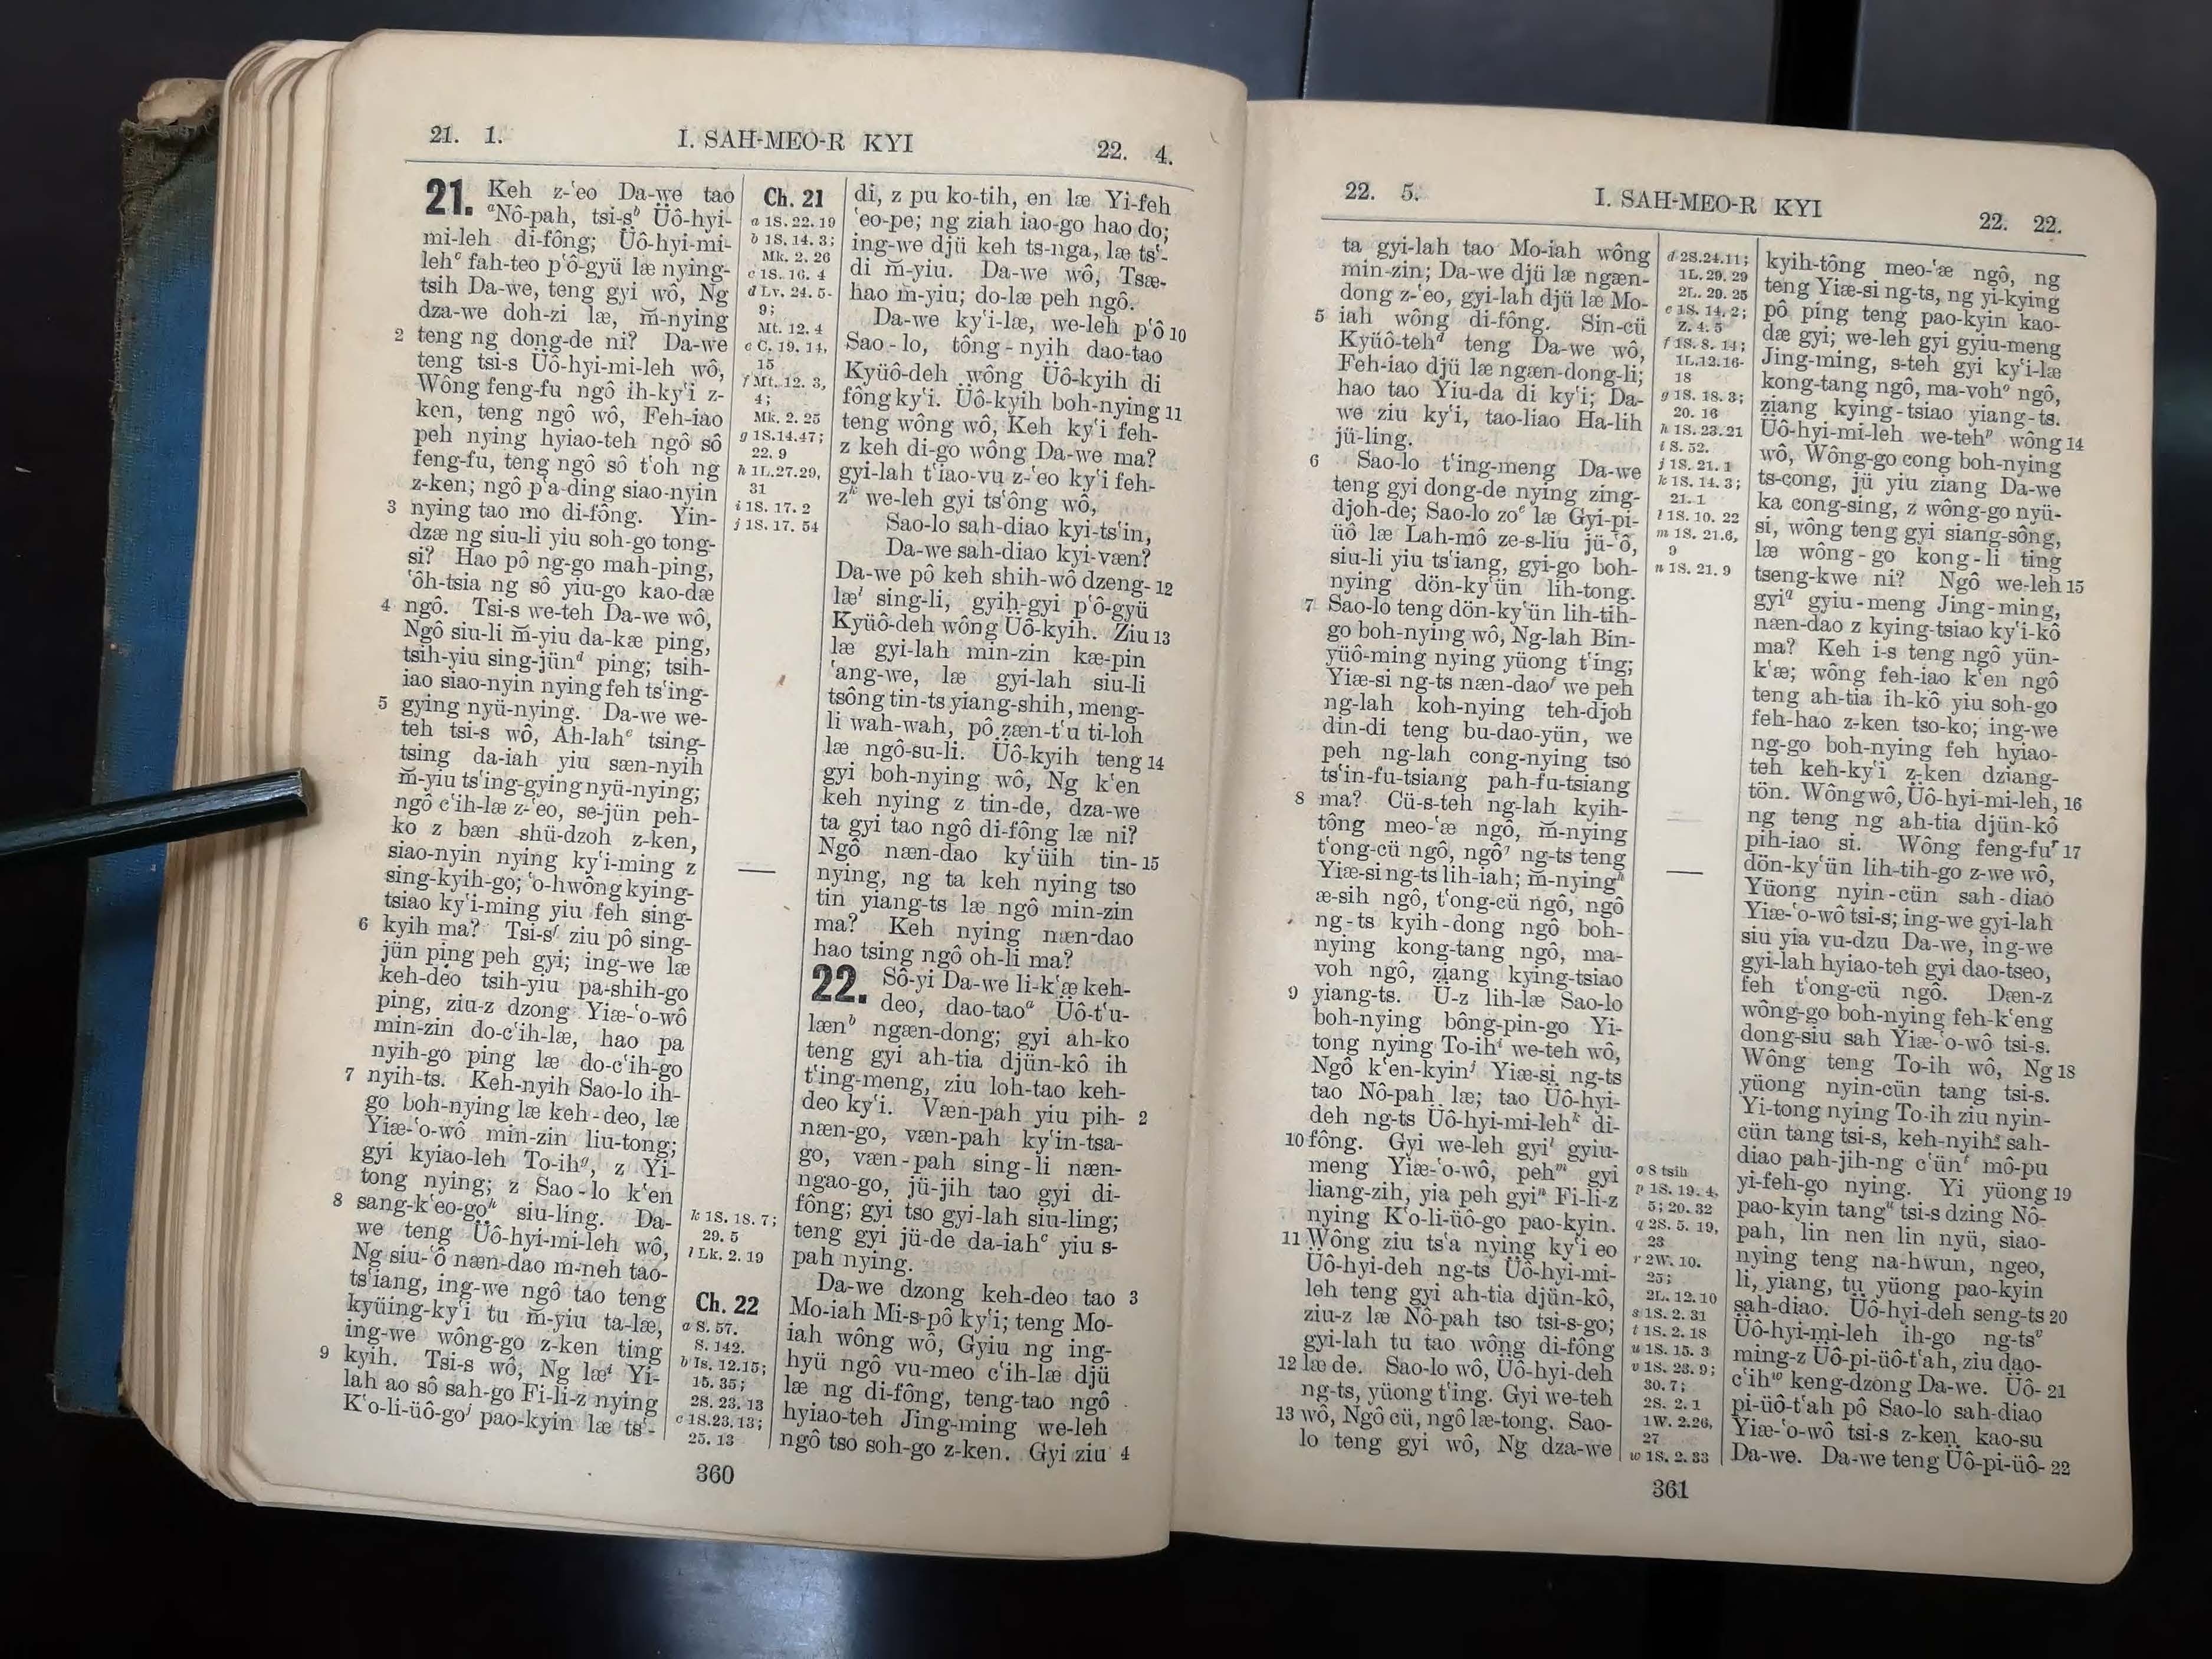 21. 1. I. SAH-MEO-R KYI 22. 4.
21. Keh z-‘eo Da-we tao
ᵃNô-pah, tsi-sᵇ Üô-hyi-
mi-leh di-fông; Üô-hyi-mi-
lehᶜ fah-teo p‘ô-gyü læ nying-
tsih Da-we, teng gyi wô, Ng
dza-we doh-zi læ, m̆-nying
2 teng ng dong-de ni? Da-we
teng tsi-s Üô-hyi-mi-leh wô,
Wông feng-fu ngô ih-ky‘i z-
ken, teng ngô wô, Feh-iao
peh nying hyiao-teh ngô sô
feng-fu, teng ngô sô t‘oh ng
z-ken; ngô p‘a-ding siao-nyin
3 nying tao mo di-fông. Yin-
dzæ ng siu-li yiu soh-go tong-
si? Hao pô ng-go mah-ping,
‘ôh-tsia ng sô yiu-go kao-dæ
4 ngô. Tsi-s we-teh Da-we wô,
Ngô siu-li m̆-yiu da-kæ ping,
tsih-yiu sing-jünᵈ ping; tsih-
iao siao-nyin nying feh ts‘ing-
5 gying nyü-nying. Da-we we-
teh tsi-s wô, Ah-lahᵉ tsing-
tsing da-iah yiu sæn-nyih
m̆-yiu ts‘ing-gying nyü-nying;
ngô c‘ih-læ z-‘eo, se-jün peh-
ko z bæn shü-dzoh z-ken,
siao-nyin nying ky‘i-ming z
sing-kyih-go; ‘o-hwông kying-
tsiao ky‘i-ming yiu feh sing-
6 kyih ma? Tsi-sᶠ ziu pô sing-
jün ping peh gyi; ing-we læ
keh-deo tsih-yiu pa-shih-go
ping, ziu-z dzong Yiæ-‘o-wô
min-zin do-c‘ih-læ, hao pa
nyih-go ping læ do-c‘ih-go
7 nyih-ts. Keh-nyih Sao-lo ih-
go boh-nying læ keh-deo, læ
Yiæ-‘o-wô min-zin liu-tong;
gyi kyiao-leh To-ihᵍ, z Yi-
tong nying; z Sao-lo k‘en
8 sang-k‘eo-goʰ siu-ling. Da-
we teng Üô-hyi-mi-leh wô,
Ng siu-‘ô næn-dao m-neh tao-
ts‘iang, ing-we ngô tao teng
kyüing-ky‘i tu m̆-yiu ta-læ,
ing-we wông-go z-ken ting
9 kyih. Tsi-s wô, Ng læⁱ Yi-
lah ao sô sah-go Fi-li-z nying
K‘o-li-üô-goʲ pao-kyin læ ts‘-
Ch. 21
a 1S. 22. 19
b 1S. 14. 3;
Mk. 2. 26
c 1S. 16. 4
d Lv. 24. 5-
9;
Mt. 12. 4
e C. 19. 14,
15
f Mt. 12. 3,
4;
Mk. 2. 25
g 1S. 14. 47;
22. 9
h 1L. 27. 29,
31
i 1S. 17. 2
j 1S. 17. 54
k 1S. 18. 7;
29. 5
l Lk. 2. 19
Ch. 22
a S. 57.
S. 142.
b Is. 12. 15;
15. 35;
2S. 23. 13
c 1S. 23. 13;
25. 13
di, z pu ko-tih, en læ Yi-feh
‘eo-pe; ng ziah iao-go hao do;
ing-we djü keh ts-nga, læ ts‘-
di m̆-yiu. Da-we wô, Tsæ-
hao m̆-yiu; do-læ peh ngô.
Da-we ky‘i-læ, we-leh p‘ô 10
Sao-lo, tông-nyih dao-tao
Kyüô-deh wông Üô-kyih di
fông ky‘i. Üô-kyih boh-nying 11
teng wông wô, Keh ky‘i feh-
z keh di-go wông Da-we ma?
gyi-lah t‘iao-vu z-‘eo ky‘i feh-
zᵏ we-leh gyi ts‘ông wô,
Sao-lo sah-diao kyi-ts‘in,
Da-we sah-diao kyi-væn?
Da-we pô keh shih-wô dzeng- 12
læˡ sing-li, gyih-gyi p‘ô-gyü
Kyüô-deh wông Üô-kyih. Ziu 13
læ gyi-lah min-zin kæ-pin
‘ang-we, læ gyi-lah siu-li
tsông tin-ts yiang-shih, meng-
li wah-wah, pô zæn-t‘u ti-loh
læ ngô-su-li. Üô-kyih teng 14
gyi boh-nying wô, Ng k‘en
keh nying z tin-de, dza-we
ta gyi tao ngô di-fông læ ni?
Ngô næn-dao ky‘üih tin- 15
nying, ng ta keh nying tso
tin yiang-ts læ ngô min-zin
ma? Keh nying næn-dao
hao tsing ngô oh-li ma?
22. Sô-yi Da-we li-k‘æ keh-
deo, dao-taoᵃ Üô-t‘u-
lænᵇ ngæn-dong; gyi ah-ko
teng gyi ah-tia djün-kô ih
t‘ing-meng, ziu loh-tao keh-
deo ky‘i. Væn-pah yiu pih- 2
næn-go, væn-pah ky‘in-tsa-
go, væn-pah sing-li næn-
ngao-go, jü-jih tao gyi di-
fông; gyi tso gyi-lah siu-ling;
teng gyi jü-de da-iahᶜ yiu s-
pah nying.
Da-we dzong keh-deo tao 3
Mo-iah Mi-s-pô ky‘i; teng Mo-
iah wông wô, Gyiu ng ing-
hyü ngô vu-meo c‘ih-læ djü
læ ng di-fông, teng-tao ngô
hyiao-teh Jing-ming we-leh
ngô tso soh-go z-ken. Gyi ziu 4
360
22. 5. I. SAH-MEO-R KYI 22. 22.
ta gyi-lah tao Mo-iah wông
min-zin; Da-we djü læ ngæn-
dong z-‘eo, gyi-lah djü læ Mo-
5 iah wông di-fông. Sin-cü
Kyüô-tehᵈ teng Da-we wô,
Feh-iao djü læ ngæn-dong-li;
hao tao Yiu-da di ky‘i; Da-
we ziu ky‘i, tao-liao Ha-lih
jü-ling.
6 Sao-lo t‘ing-meng Da-we
teng gyi dong-de nying zing-
djoh-de; Sao-lo zoᵉ læ Gyi-pi-
üô læ Lah-mô ze-s-liu jü-‘ô,
siu-li yiu ts‘iang, gyi-go boh-
nying dön-ky‘ün lih-tong.
7 Sao-lo teng dön-ky‘ün lih-tih-
go boh-nying wô, Ng-lah Bin-
yüô-ming nying yüong t‘ing;
Yiæ-si ng-ts næn-daoᶠ we peh
ng-lah koh-nying teh-djoh
din-di teng bu-dao-yün, we
peh ng-lah cong-nying tso
ts‘in-fu-tsiang pah-fu-tsiang
8 ma? Cü-s-teh ng-lah kyih-
tông meo-‘æ ngô, m̆-nying
t‘ong-cü ngô, ngôᵍ ng-ts teng
Yiæ-si ng-ts lih-iah; m̆-nyingʰ
æ-sih ngô, t‘ong-cü ngô, ngô
ng-ts kyih-dong ngô boh-
nying kong-tang ngô, ma-
voh ngô, ziang kying-tsiao
9 yiang-ts. Ü-z lih-læ Sao-lo
boh-nying bông-pin-go Yi-
tong nying To-ihⁱ we-teh wô,
Ngô k‘en-kyinʲ Yiæ-si ng-ts
tao Nô-pah læ; tao Üô-hyi-
deh ng-ts Üô-hyi-mi-lehᵏ di-
10 fông. Gyi we-leh gyiˡ gyiu-
meng Yiæ-‘o-wô, pehᵐ gyi
liang-zih, yia peh gyiⁿ Fi-li-z
nying K‘o-li-üô-go pao-kyin.
11 Wông ziu ts‘a nying ky‘i eo
Üô-hyi-deh ng-ts Üô-hyi-mi-
leh teng gyi ah-tia djün-kô,
ziu-z læ Nô-pah tso tsi-s-go;
gyi-lah tu tao wông di-fông
12 læ de. Sao-lo wô, Üô-hyi-deh
ng-ts, yüong t‘ing. Gyi we-teh
13 wô, Ngô cü, ngô læ-tong. Sao-
lo teng gyi wô, Ng dza-we
d 2S. 24. 11;
1L. 29. 29
2L. 29. 25
e 1S. 14. 2;
Z. 4. 5
f 1S. 8. 14;
1L. 12. 16-
18
g 1S. 18. 3;
20. 16
h 1S. 23. 21
i S. 52.
j 1S. 21. 1
k 1S. 14. 3;
21. 1
l 1S. 10. 22
m 1S. 21. 6,
9
n 1S. 21. 9
o 8 tsih
p 1S. 19. 4,
5; 20. 32
q 2S. 5. 19,
23
r 2W. 10.
25;
2L. 12. 10
s 1S. 2. 31
t 1S. 2. 18
u 1S. 15. 3
v 1S. 23. 9;
30. 7;
2S. 2. 1
1W. 2. 26,
27
w 1S. 2. 33
kyih-tông meo-‘æ ngô, ng
teng Yiæ-si ng-ts, ng yi-kying
pô ping teng pao-kyin kao-
dæ gyi; we-leh gyi gyiu-meng
Jing-ming, s-teh gyi ky‘i-læ
kong-tang ngô, ma-vohᵒ ngô,
ziang kying-tsiao yiang-ts.
Üô-hyi-mi-leh we-tehᵖ wông 14
wô, Wông-go cong boh-nying
ts-cong, jü yiu ziang Da-we
ka cong-sing, z wông-go nyü-
si, wông teng gyi siang-sông,
læ wông-go kong-li ting
tseng-kwe ni? Ngô we-leh 15
gyi<sup>q</sup> gyiu-meng Jing-ming,
næn-dao z kying-tsiao ky‘i-kô
ma? Keh i-s teng ngô yün-
k‘æ; wông feh-iao k‘en ngô
teng ah-tia ih-kô yiu soh-go
feh-hao z-ken tso-ko; ing-we
ng-go boh-nying feh hyiao-
teh keh-ky‘i z-ken dziang-
tön. Wông wô, Üô-hyi-mi-leh, 16
ng teng ng ah-tia djün-kô
pih-iao si. Wông feng-fuʳ 17
dön-ky‘ün lih-tih-go z-we wô,
Yüong nyin-cün sah-diao
Yiæ-‘o-wô tsi-s; ing-we gyi-lah
siu yia vu-dzu Da-we, ing-we
gyi-lah hyiao-teh gyi dao-tseo,
feh t‘ong-cü ngô. Dæn-z
wông-go boh-nying feh-k‘eng
dong-siu sah Yiæ-‘o-wô tsi-s.
Wông teng To-ih wô, Ng 18
yüong nyin-cün tang tsi-s.
Yi-tong nying To-ih ziu nyin-
cün tang tsi-s, keh-nyihˢ sah-
diao pah-jih-ng c‘ünᵗ mô-pu
yi-feh-go nying. Yi yüong 19
pao-kyin tangᵘ tsi-s dzing Nô-
pah, lin nen lin nyü, siao-
nying teng na-hwun, ngeo,
li, yiang, tu yüong pao-kyin
sah-diao. Üô-hyi-deh seng-ts 20
Üô-hyi-mi-leh ih-go ng-tsᵛ
ming-z Üô-pi-üô-t‘ah, ziu dao-
c‘ihʷ keng-dzong Da-we. Üô- 21
pi-üô-t‘ah pô Sao-lo sah-diao
Yiæ-‘o-wô tsi-s z-ken kao-su
Da-we. Da-we teng Üô-pi-üô- 22
361